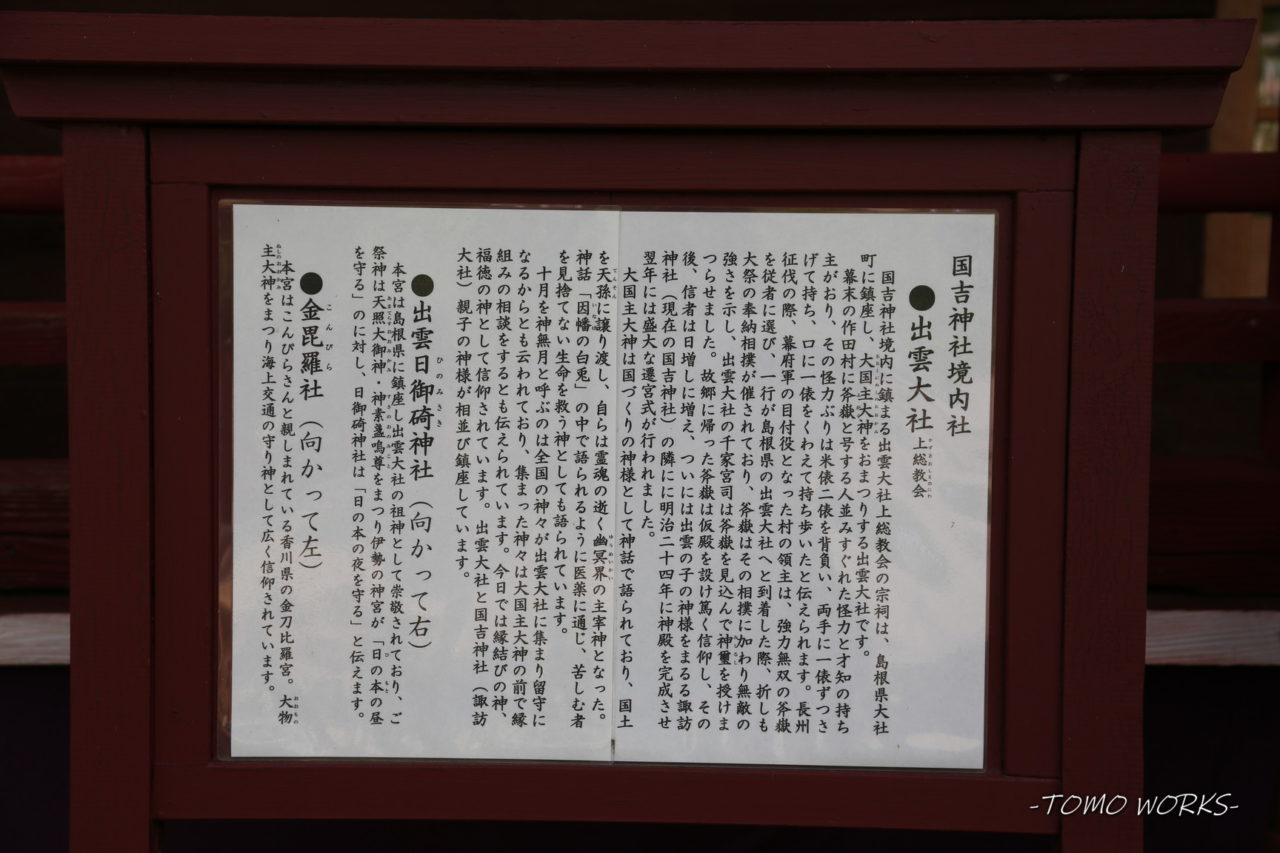 国吉神社境内社
●出雲大社 上総教会
国吉神社境内に鎮まる出雲大社上総教会の宗祠は、島根県大社
町に鎮座し、大国主大神をおまつりする出雲大社です。
幕末の作田村に斧嶽と号する人並みすぐれた怪力と才知の持ち
主がおり、その怪力ぶりは米俵二俵を背負い、両手に一俵ずつさ
げて持ち、口に一俵をくわえて持ち歩いたと伝えられます。長州
征伐の際、幕府軍の目付役となった村の領主は、強力無双の斧嶽
を従者に選び、一行が島根県の出雲大社へと到着した際、折しも
大祭の奉納相撲が催されており、斧嶽はその相撲に加わり無敵の
強さを示し、出雲大社の千家宮司は斧嶽を見込んで神璽を授けま
つらせました。故郷に帰った斧嶽は仮殿を設け篤く信仰し、その
後、信者は日増しに増え、ついには出雲の子の神様をまるる諏訪
神社（現在の国吉神社）の隣にに明治二十四年に神殿を完成させ
翌年には盛大な遷宮式が行われました。
大国主大神は国づくりの神様として神話で語られており、国土
を天孫に譲り渡し、自らは霊魂の逝く幽冥界の主宰神となった。
神話「因幡の白兎」の中で語られるように医薬に通じ、苦しむ者
を見捨てない生命を救う神としても語られています。
十月を神無月と呼ぶのは全国の神々が出雲大社に集まり留守に
なるからとも云われており、集まった神々は大国主大神の前で縁
組みの相談をするとも伝えられています。今日では縁結びの神、
福徳の神として信仰されています。出雲大社と国吉神社（諏訪
大社）親子の神様が相並び鎮座しています。
●出雲日御碕神社（向かって右）
ひのみさき
本宮は島根県に鎮座し出雲大社の祖神として崇敬されており、ご
祭神は天照大御神・神素盞嗚尊をまつり伊勢の神宮が「日の本の昼
を守る」のに対し、日御碕神社は「日の本の夜を守る」と伝えます。
●金毘羅社（向かって左）
こんぴら
本宮はこんぴらさんと親しまれている香川県の金刀比羅宮。大物
主大神をまつり海上交通の守り神として広く信仰されています。
-TOMO WORKS-